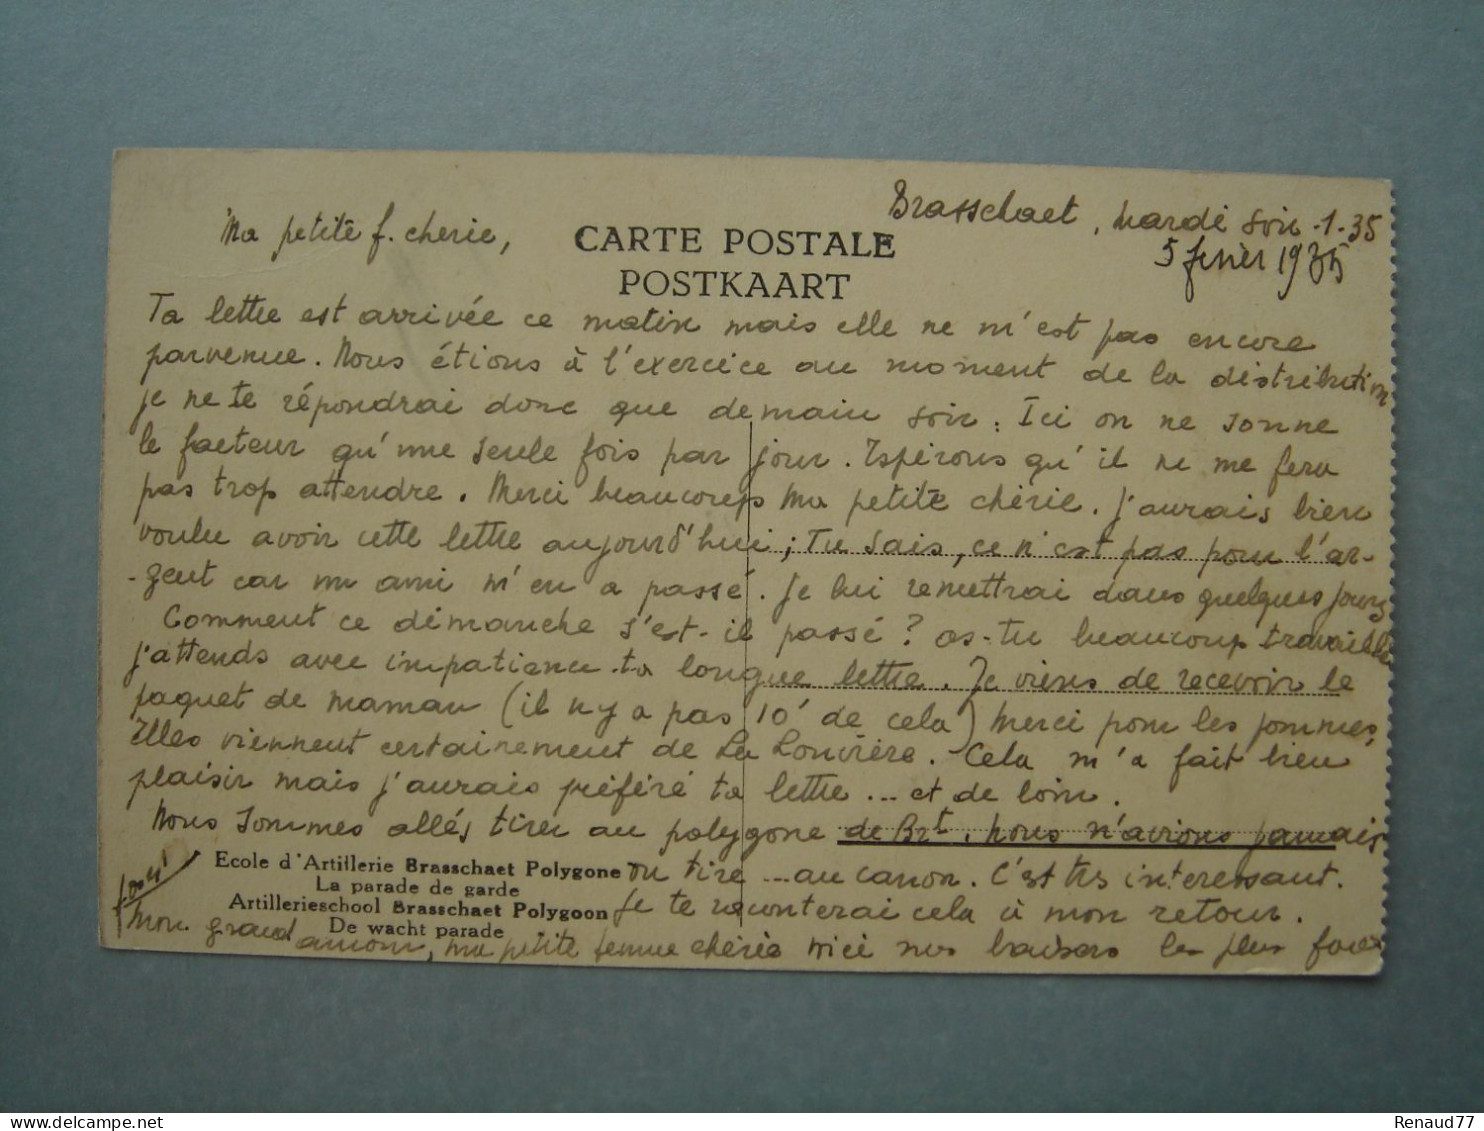 Brasschaet, mardi soir -1-35
5 fevrier 1935
Ma petite f. cherie,
CARTE POSTALE
POSTKAART
Ta lettre est arrivée ce matin mais elle ne m'est pas encore
parvenue. Nous étions à l'exercice au moment de la distribution
je ne te répondrai donc que demain soir. Ici on ne sonne
le facteur qu'une seule fois par jour. Espérons qu'il ne me fera
pas trop attendre. Merci beaucoup ma petite chérie. J'aurais bien
voulu avoir cette lettre aujourd'hui ; Tu sais, ce n'est pas pour l'ar-
-gent car un ami m'en a passé. Je lui remettrai dans quelques jours
Comment ce dimanche s'est-il passé ? as-tu beaucoup travaillé
j'attends avec impatience ta longue lettre. Je viens de recevoir le
paquet de maman (il n'y a pas 10' de cela) Merci pour les pommes,
Elles viennent certainement de La Louvière. Cela m'a fait bien
plaisir mais j'aurais préféré ta lettre ... et de loin.
Nous sommes allés tirer au polygone de Brt. nous n'avions jamais
Ecole d'Artillerie Brasschaet Polygone
La parade de garde
Artillerieschool Brasschaet Polygoon
De wacht parade
tiré ... au canon. C'est très interessant.
Je te raconterai cela à mon retour.
Mon grand amour, ma petite femme chérie voici mes baisers les plus fous
Renaud77